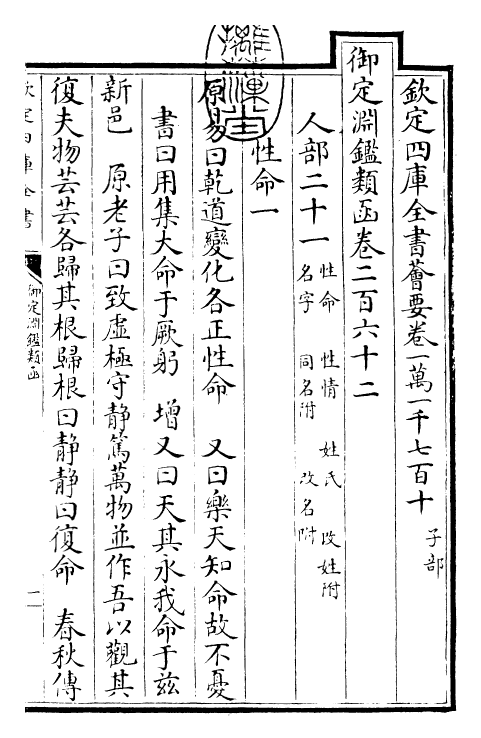 欽定四庫全書薈要卷一萬一千七百十 子部
御定淵鑑類函卷二百六十二
人部二十一 性命 性情 姓氏 改姓附
名字 同名附 改名附
性命一
原易曰乾道變化各正性命 又曰樂天知命故不憂
書曰用集大命于厥躬 增又曰天其永我命于兹
新邑 原老子曰致虛極守靜篤萬物並作吾以觀其
復夫物芸芸各歸其根歸根曰靜靜曰復命 春秋傳
欽定四庫全書
御定淵鑑類函
一